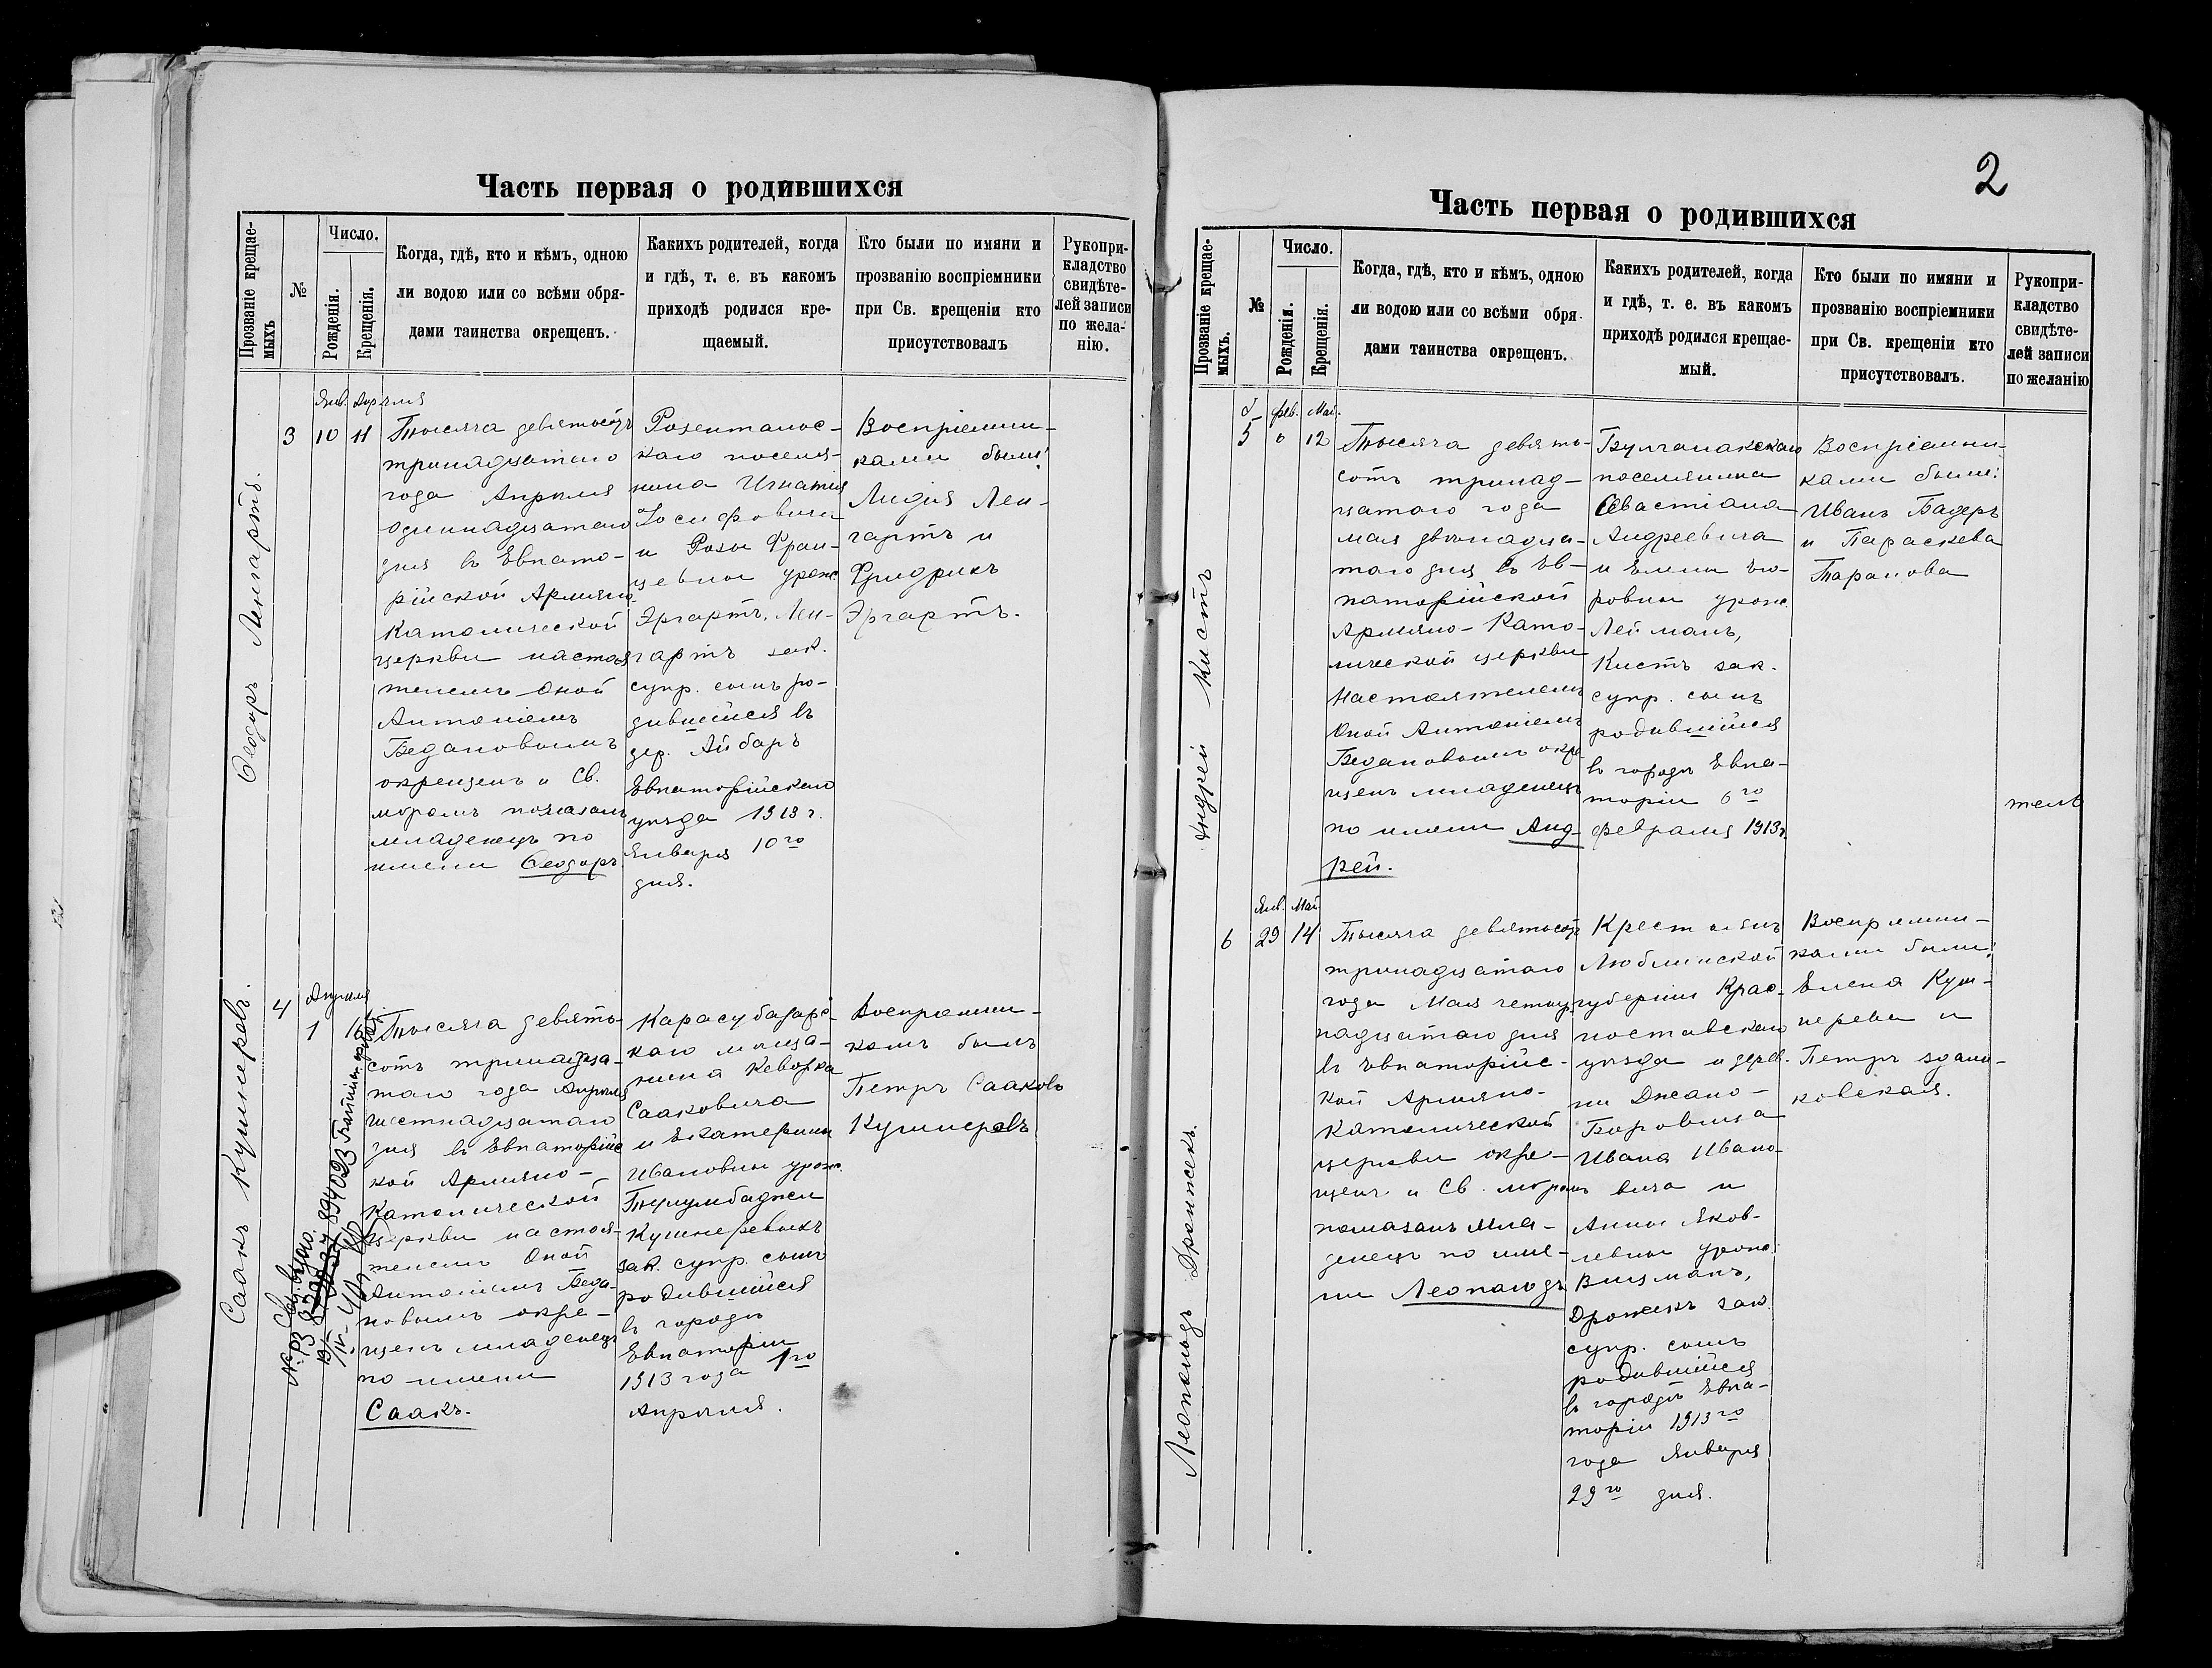 Часть первая о родившихся
Прозваніе крещае-
мыхъ
№
Число.
Рожденія.
Крещенія.
Когда, гдѣ, кто и кѣмъ, одною
ли водою или со всѣми обря-
дами таинства окрещенъ.
Какихъ родителей, когда
и гдѣ, т. е. въ какомъ
приходѣ родился кре-
щаемый.
Кто были по имяни и
прозванію воспріемники
при Св. крещеніи кто
присутствовалъ
Рукопри-
кладство
свидѣте-
лей записи
по жела-
нію.
Ѳеодоръ Ленгартъ.
3
Янв. Апрѣля
10 11
Тысяча девятьсотъ
тринадцатаго
года Апрѣля
одиннадцатаго
дня въ Евпато-
рійской Армяно-
Католической
церкви настоя-
телемъ оной
Антоніемъ
Бедановымъ
окрещенъ и Св.
мѵромъ помазанъ
младенецъ по
имени Ѳеодоръ
Розенталос-
каго поселя-
нина Игнатія
Іосифовича
и Розы Фран-
цевны урож.
Эргартъ, Лен-
гартъ зак.
супр. сынъ ро-
дившійся въ
дер. Айбаръ
Евпаторійскаго
уѣзда 1913 г.
Января 10го
дня.
Воспріемни-
ками были:
Лидія Лен-
гартъ и
Фридрихъ
Эргартъ.
Саакъ Кушнеревъ.
4
Апрѣля
1 16
Тысяча девять-
сотъ тринадца-
таго года Апрѣля
шестнадцатаго
дня въ Евпаторійс-
кой Армяно-
Католической
церкви настоя-
телемъ оной
Антоніемъ Беда-
новымъ окре-
щенъ младенецъ
по имени
Саакъ.
Карасубазарс-
каго мѣща-
нина Кеворка
Сааковича
и Екатерины
Ивановны урож.
Тулумбаджи
Кушнеревыхъ
зак. супр. сынъ
родившійся
въ городѣ
Евпаторіи
1913 года 1го
Апрѣля.
Воспріемни-
комъ былъ
Петръ Сааковъ
Кушнеревъ
2
Часть первая о родившихся
Прозваніе крещае-
мыхъ.
№
Число.
Рожденія.
Крещенія.
Когда, гдѣ, кто и кѣмъ, одною
ли водою или со всѣми обря-
дами таинства окрещенъ.
Какихъ родителей, когда
и гдѣ, т. е. въ какомъ
приходѣ родился крещае-
мый.
Кто были по имяни и
прозванію воспріемники
при Св. крещеніи кто
присутствовалъ.
Рукопри-
кладство
свидѣте-
лей записи
по желанію
Андрей Кистъ
5
фев. Май.
6 12
Тысяча девять-
сотъ тринад-
цатаго года
мая двѣнадца-
таго дня въ Ев-
паторійской
Армяно-Като-
лической церкви
Настоятелемъ
оной Антоніемъ
Бедановымъ окре-
щенъ младенецъ
по имени Анд-
рей.
Булганакскаго
поселянина
Севастіана
Андреевича
и Елены
ровны урож.
Лейманъ,
Кистъ зак.
супр. сынъ
родившійся
въ городѣ Евпа-
торіи 6го
февраля 1913г.
Воспріемни-
ками были:
Иванъ Бадеръ
и Параскева
Таранова
тель
Леопольдъ Дрожжекъ.
6
Янв. Май.
29 14
Тысяча девятьсотъ
тринадцатаго
года Мая четыр-
надцатаго дня
въ Евпаторійс-
кой Армяно-
Католической
церкви окре-
щенъ и Св. мѵромъ
помазанъ мла-
денецъ по име-
ни Леопольдъ
Крестьянъ
Люблинской
губерніи Крас-
ноставскаго
уѣзда и дерев-
ни
Боровица
Ивана Ивано-
вича и
Анны Яков-
левны урож.
Вицманъ,
зак.
супр. сынъ
родившійся
въ городѣ Евпа-
торіи 1913го
года Января
29го дня.
Воспріемни-
ками были:
Елена Куш-
нерева и
Петръ
ковская.